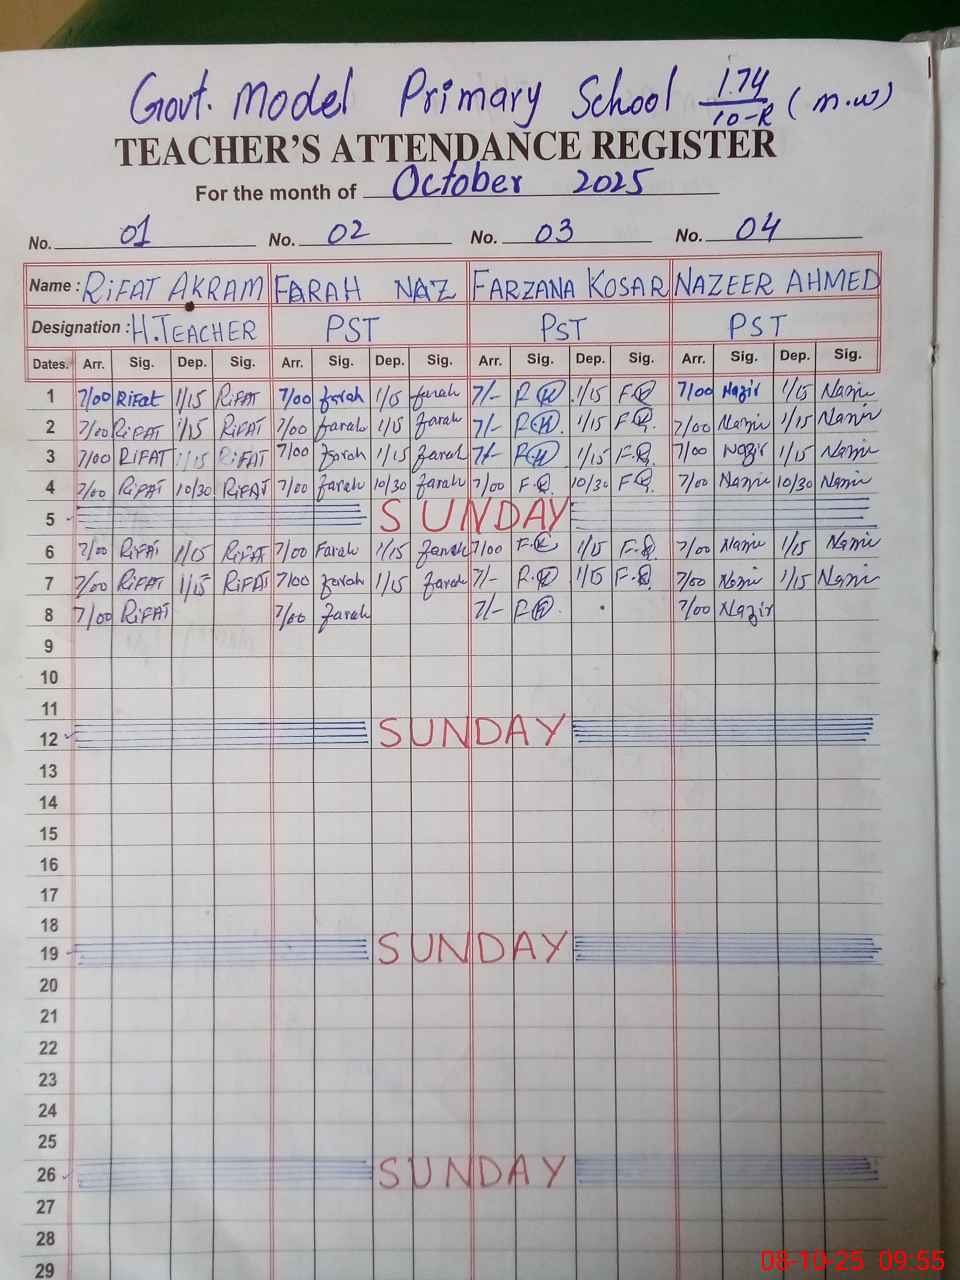 Govt. Model Primary School 174/10-R (M.W)
TEACHER'S ATTENDANCE REGISTER
For the month of October 2025
No. 01 No. 02 No. 03 No. 04
Name : RIFAT AKRAM FARAH NAZ FARZANA KOSAR NAZEER AHMED
Designation : H.TEACHER PST PST PST
Dates. Arr. Sig. Dep. Sig. Arr. Sig. Dep. Sig. Arr. Sig. Dep. Sig. Arr. Sig. Dep. Sig.
1 7/00 Rifat 1/15 RiFAT 7/00 Farah 1/15 Farah 7/- 1/15 7/00 Nazir 1/15 Nazir
2 7/00 RiFAT 1/15 RiFAT 7/00 Farah 1/15 Farah 7/- 1/15 7/00 Nazir 1/15 Nazir
3 7/00 RIFAT 1/15 RiFAT 7/00 Farah 1/15 Farah 7/- 1/15 7/00 Nazir 1/15 Nazir
4 7/00 RiFAT 10/30 RiFAT 7/00 Farah 10/30 Farah 7/00 10/30 7/00 Nazir 10/30 Nazir
5 SUNDAY
6 7/00 RiFAT 1/15 RiFAT 7/00 Farah 1/15 Farah 7/00 1/15 7/00 Nazir 1/15 Nazir
7 7/00 RiFAT 1/15 RiFAT 7/00 Farah 1/15 Farah 7/- 1/15 7/00 Nazir 1/15 Nazir
8 7/00 RiFAT 7/00 Farah 7/- 7/00 Nazir
9
10
11
12 SUNDAY
13
14
15
16
17
18
19 SUNDAY
20
21
22
23
24
25
26 SUNDAY
27
28
29
08-10-25 09:55